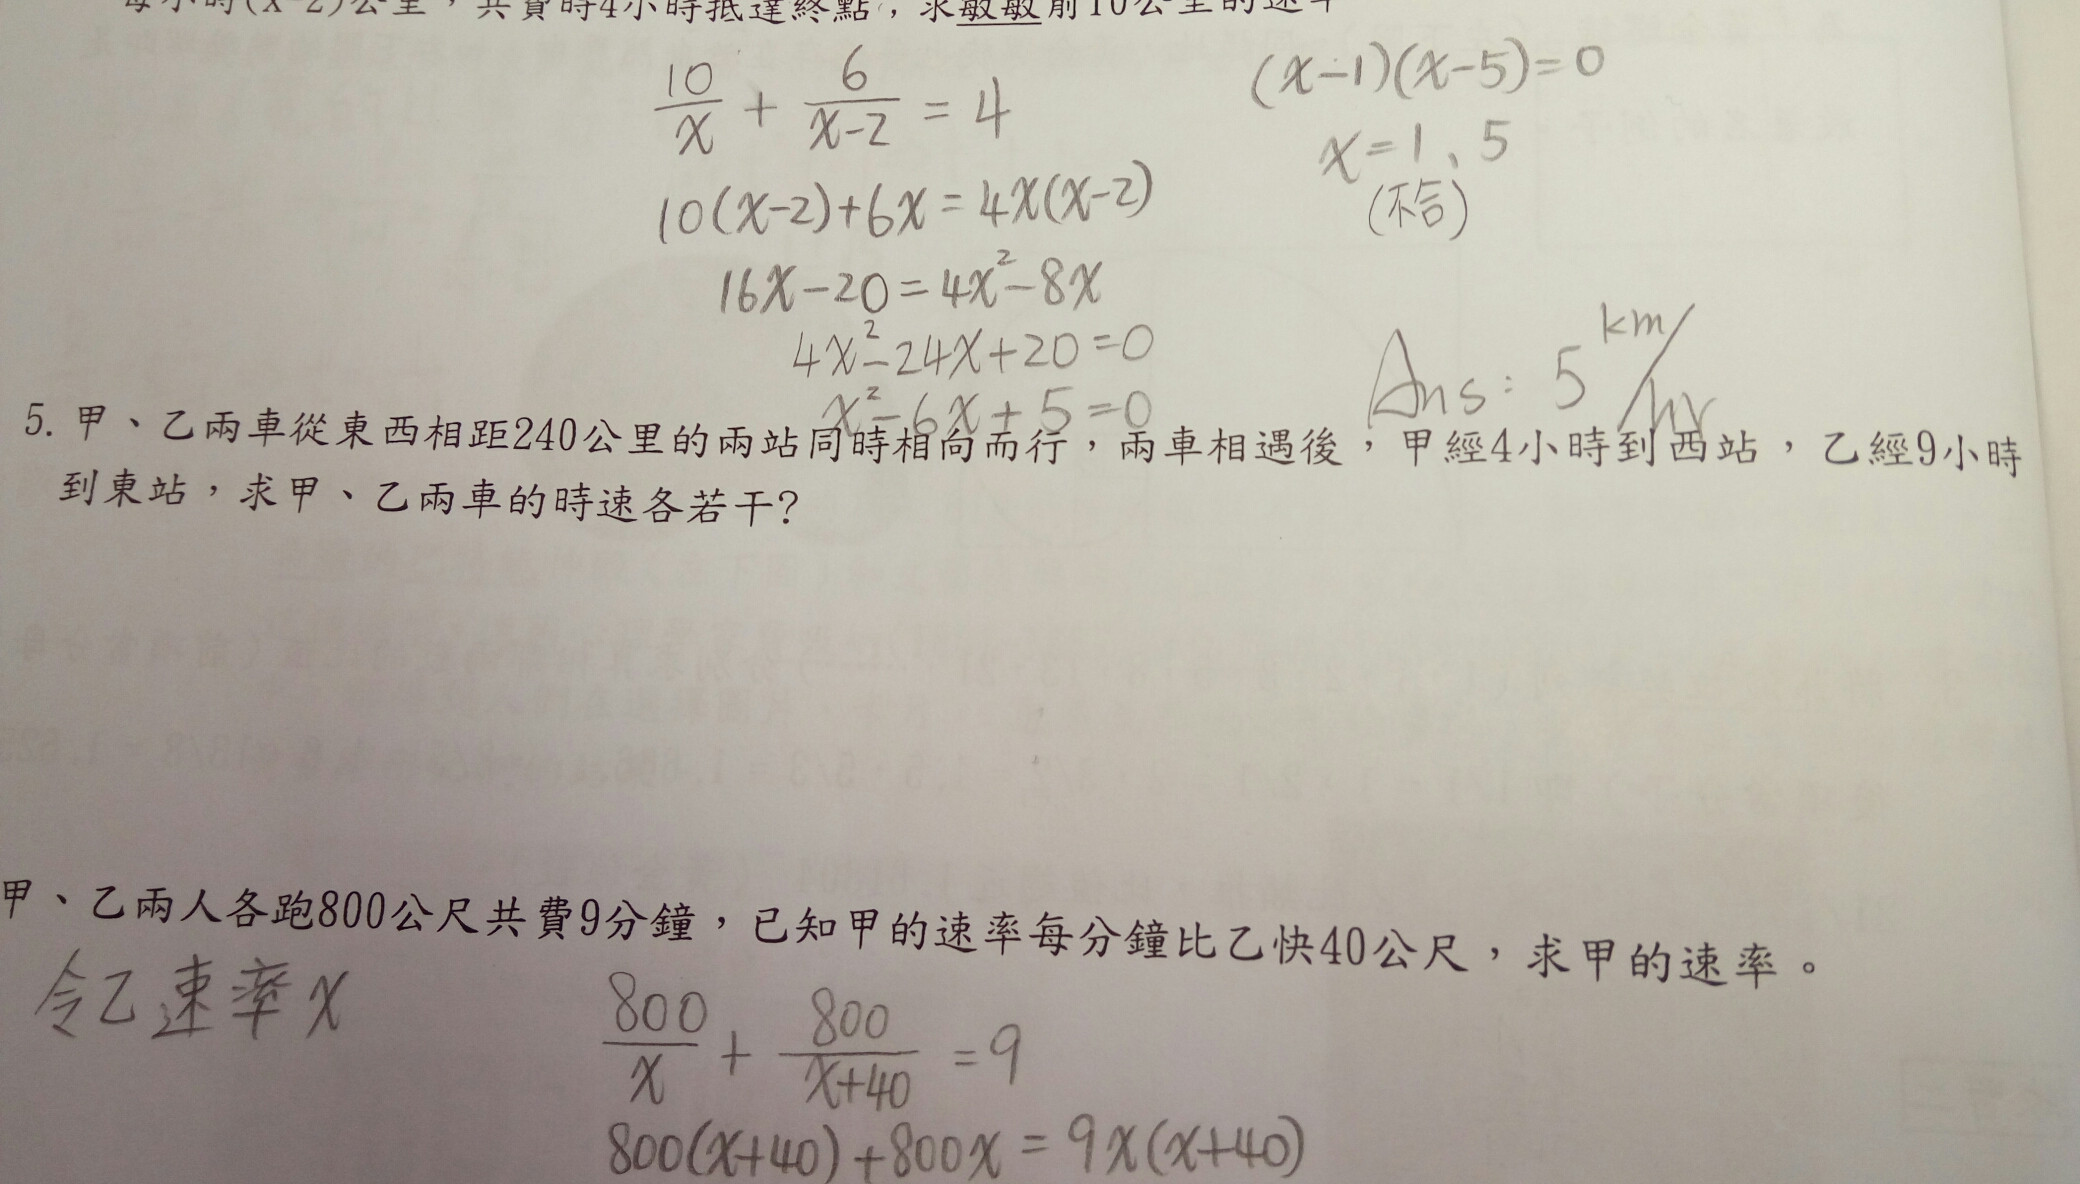 每小時(x-2)公里，共費時4小時抵達終點，求敏敏前10公里的速率
10/x + 6/(x-2) = 4
(x-1)(x-5)=0
10(x-2)+6x=4x(x-2)
x=1、5
(不合)
16x-20=4x²-8x
4x²-24x+20=0
x²-6x+5=0
Ans: 5 km/hr
5. 甲、乙兩車從東西相距240公里的兩站同時相向而行，兩車相遇後，甲經4小時到西站，乙經9小時
到東站，求甲、乙兩車的時速各若干?
甲、乙兩人各跑800公尺共費9分鐘，已知甲的速率每分鐘比乙快40公尺，求甲的速率。
令乙速率x
800/x + 800/(x+40) = 9
800(x+40)+800x=9x(x+40)